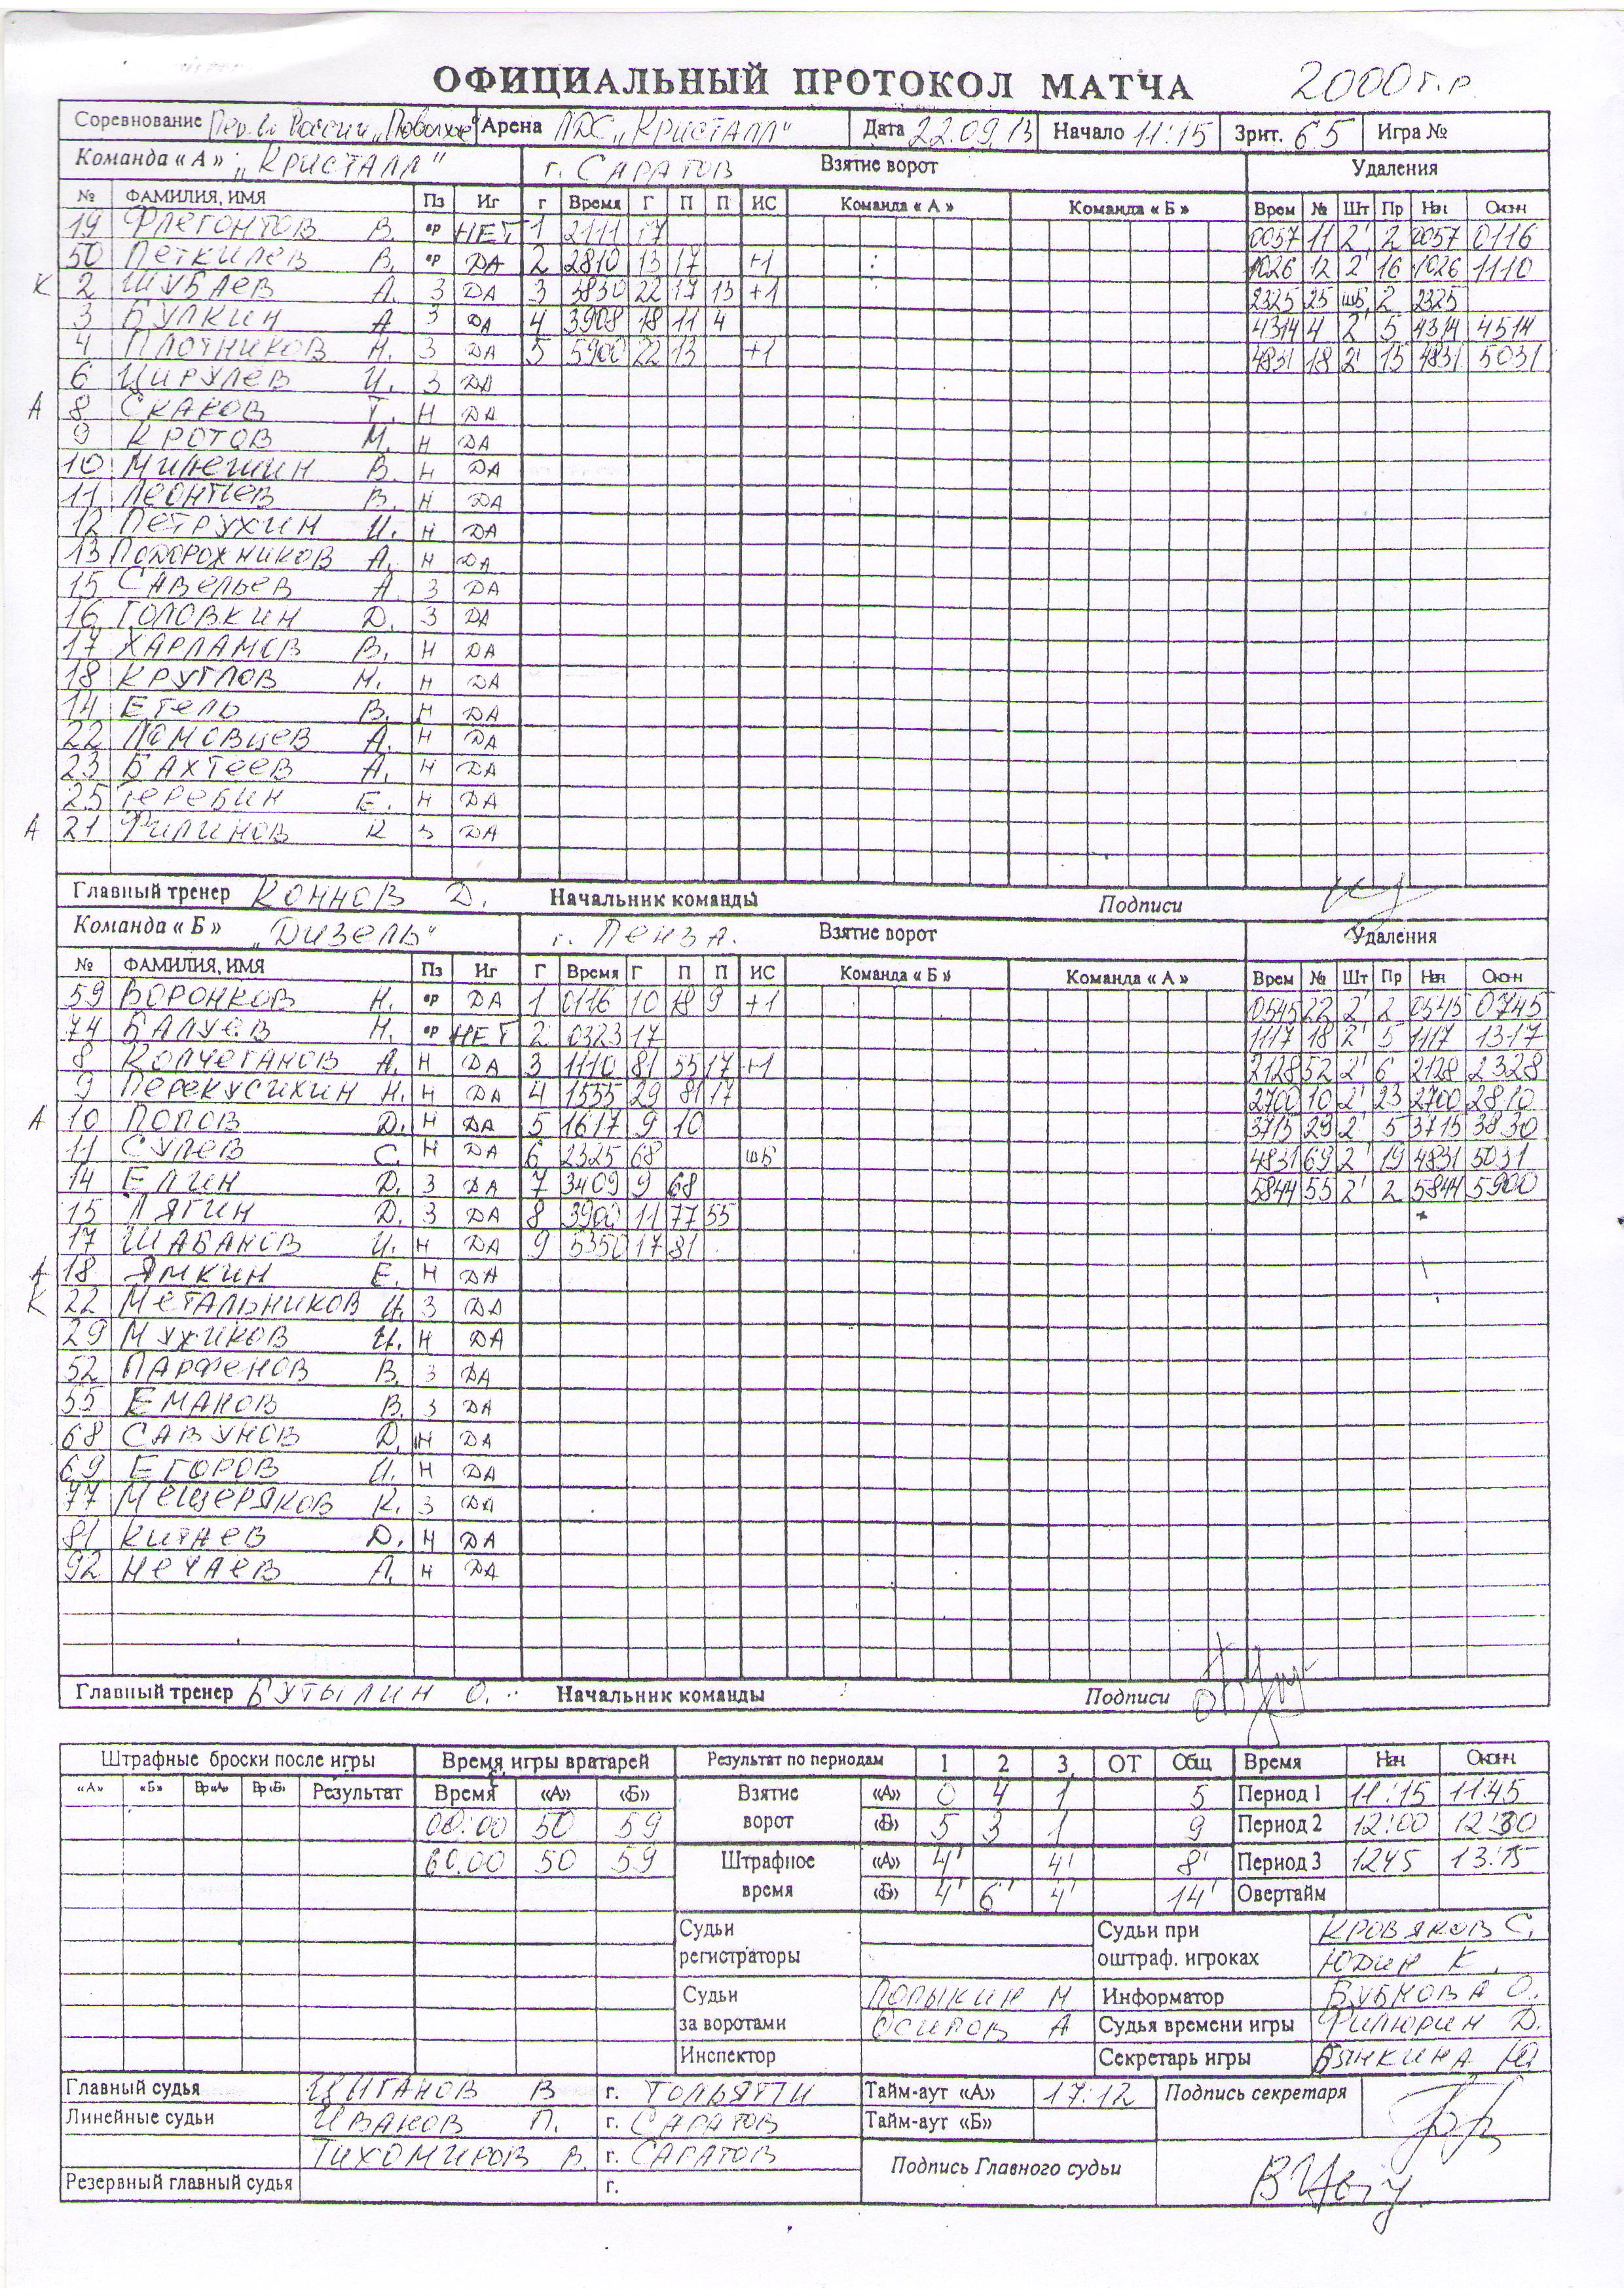 ОФИЦИАЛЬНЫЙ ПРОТОКОЛ МАТЧА 2000 г.р.
Соревнование Пер-во России „Поволжье" Арена ЛДС „Кристалл" Дата 22.09.13 Начало 11:15 Зрит. 65 Игра №
Команда « А » „Кристалл" г. Саратов Взятие ворот Удаления
№ ФАМИЛИЯ, ИМЯ Пз Иг Г Время Г П П ИС Команда « А » Команда « Б » Врем № Шт Пр Нач Оконч
19 Флегонтов В. вр НЕТ 1 2111 17 0057 11 2' 2 0057 0116
50 Петкилев В. вр ДА 2 2810 13 17 +1 1026 12 2' 16 1026 1110
К 2 Шубаев А. З ДА 3 3830 22 17 13 +1 2325 25 шб 2 2325
3 Булкин А З ДА 4 3908 18 11 4 4314 4 2' 5 4314 4514
4 Плотников Н. З ДА 5 5900 22 13 +1 4831 18 2' 13 4831 5031
6 Цирулев И. З ДА
А 8 Скаков Т. Н ДА
9 Кротов М. Н ДА
10 Милешин В. Н ДА
11 Леонтьев В. Н ДА
12 Петрухин И. Н ДА
13 Подорожников А. Н ДА
15 Савельев А З ДА
16 Головкин Д. З ДА
17 Харламов В. Н ДА
18 Круглов Н. Н ДА
14 Етель В. Н ДА
22 Ломовцев А. Н ДА
23 Бахтеев А. Н ДА
25 Теребин Е. Н ДА
А 21 Филинов К З ДА
Главный тренер Коннов Д. Начальник команды Подписи
Команда « Б » „Дизель" г. Пенза. Взятие ворот Удаления
№ ФАМИЛИЯ, ИМЯ Пз Иг Г Время Г П П ИС Команда « Б » Команда « А » Врем № Шт Пр Нач Оконч
59 Воронков Н. вр ДА 1 0116 10 18 9 +1 0545 22 2' 2 0545 0745
74 Балуев Н. вр НЕТ 2 0323 17 1117 18 2' 5 1117 1317
8 Колчеганов А. Н ДА 3 1110 81 55 17 +1 2128 52 2' 6 2128 2328
9 Перекусихин Н. Н ДА 4 1555 29 81 17 2700 10 2' 23 2700 2810
А 10 Попов Д. Н ДА 5 1617 9 10 3715 29 2' 5 3715 3830
11 Сулев С. Н ДА 6 2325 68 шб 4831 69 2' 19 4831 5031
14 Елин Д. З ДА 7 3409 9 68 5844 55 2' 2 5844 5900
15 Лягин Д. З ДА 8 3900 11 77 55
17 Шабанов И. Н ДА 9 5350 17 81
А 18 Ямкин Е. Н ДА
К 22 Метальников И. З ДА
29 Мужиков И. Н ДА
52 Парфенов В. З ДА
55 Еманов В. З ДА
68 Савунов Д. Н ДА
69 Егоров И. Н ДА
77 Мещеряков К. З ДА
81 Китаев Д. Н ДА
92 Нечаев А. Н ДА
Главный тренер Бутылин О. Начальник команды Подписи
Штрафные броски после игры Время игры вратарей Результат по периодам 1 2 3 ОТ Общ Время Нач Оконч
«А» «Б» Вр«А» Вр«Б» Результат Время «А» «Б» Взятие «А» 0 4 1 5 Период 1 11:15 11:45
00:00 50 59 ворот «Б» 5 3 1 9 Период 2 12:00 12:30
60.00 50 59 Штрафное «А» 4' 4' 8' Период 3 1245 13:15
время «Б» 4' 6' 4' 14' Овертайм
Судьи Судьи при Кровяков С.
регистраторы оштраф. игроках Юдин К.
Судьи Лопыкин Н Информатор Бубнова О.
за воротами Осипов А Судья времени игры Филюрин Д.
Инспектор Секретарь игры Бянкина Ю
Главный судья Цыганов В г. Тольятти Тайм-аут «А» 17:12 Подпись секретаря
Линейные судьи Иванов П. г. Саратов Тайм-аут «Б»
Тихомиров В. г. Саратов Подпись Главного судьи
Резервный главный судья г.